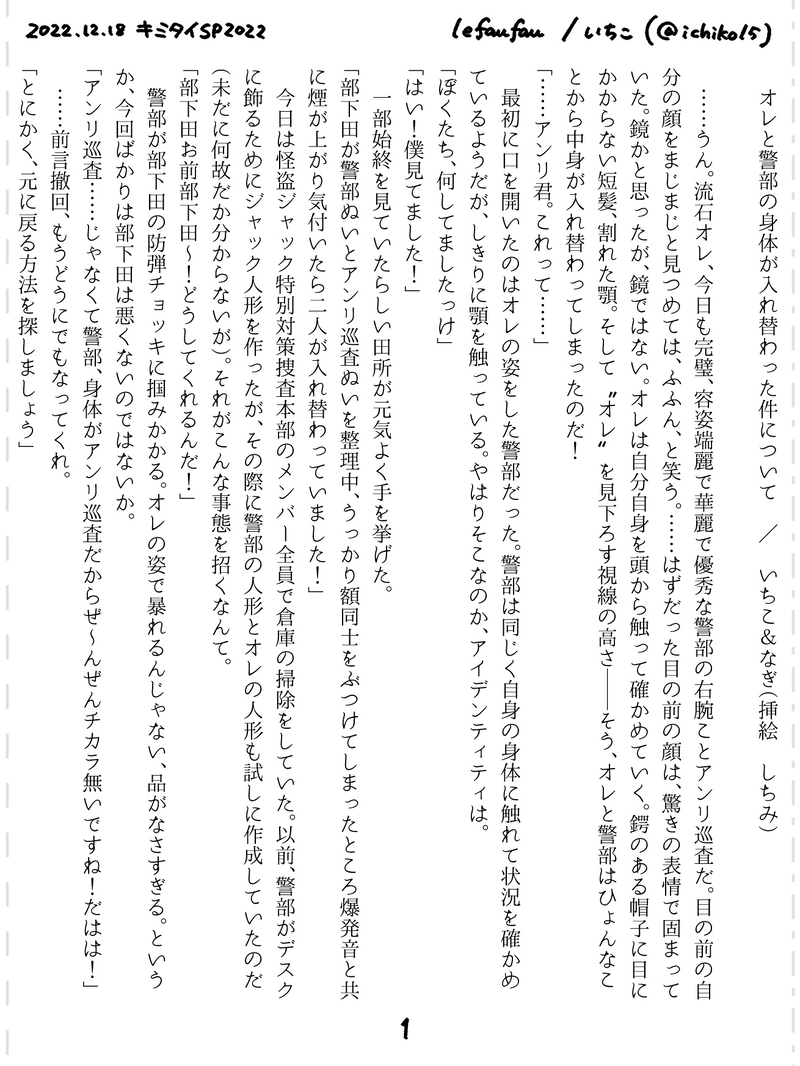 2022.12.18 キミタイSP2022
lefaufau / いちこ (@ichiko15)
オレと警部の身体が入れ替わった件について / いちこ&なぎ(挿絵 しちみ)
……うん。流石オレ、今日も完璧、容姿端麗で華麗で優秀な警部の右腕ことアンリ巡査だ。目の前の自
分の顔をまじまじと見つめては、ふふん、と笑う。……はずだった目の前の顔は、驚きの表情で固まって
いた。鏡かと思ったが、鏡ではない。オレは自分自身を頭から触って確かめていく。鍔のある帽子に目に
かからない短髪、割れた顎。そして〝オレ〟を見下ろす視線の高さ――そう、オレと警部はひょんなこ
とから中身が入れ替わってしまったのだ!
「……アンリ君。これって……」
最初に口を開いたのはオレの姿をした警部だった。警部は同じく自身の身体に触れて状況を確かめ
ているようだが、しきりに顎を触っている。やはりそこなのか、アイデンティティは。
「ぼくたち、何してましたっけ」
「はい!僕見てました!」
一部始終を見ていたらしい田所が元気よく手を挙げた。
「部下田が警部ぬいとアンリ巡査ぬいを整理中、うっかり額同士をぶつけてしまったところ爆発音と共
に煙が上がり気付いたら二人が入れ替わっていました!」
今日は怪盗ジャック特別対策捜査本部のメンバー全員で倉庫の掃除をしていた。以前、警部がデスク
に飾るためにジャック人形を作ったが、その際に警部の人形とオレの人形も試しに作成していたのだ
(未だに何故だか分からないが)。それがこんな事態を招くなんて。
「部下田お前部下田〜!どうしてくれるんだ!」
警部が部下田の防弾チョッキに掴みかかる。オレの姿で暴れるんじゃない、品がなさすぎる。という
か、今回ばかりは部下田は悪くないのではないか。
「アンリ巡査……じゃなくて警部、身体がアンリ巡査だからぜ〜んぜんチカラ無いですね!だはは!」
……前言撤回、もうどうにでもなってくれ。
「とにかく、元に戻る方法を探しましょう」
1